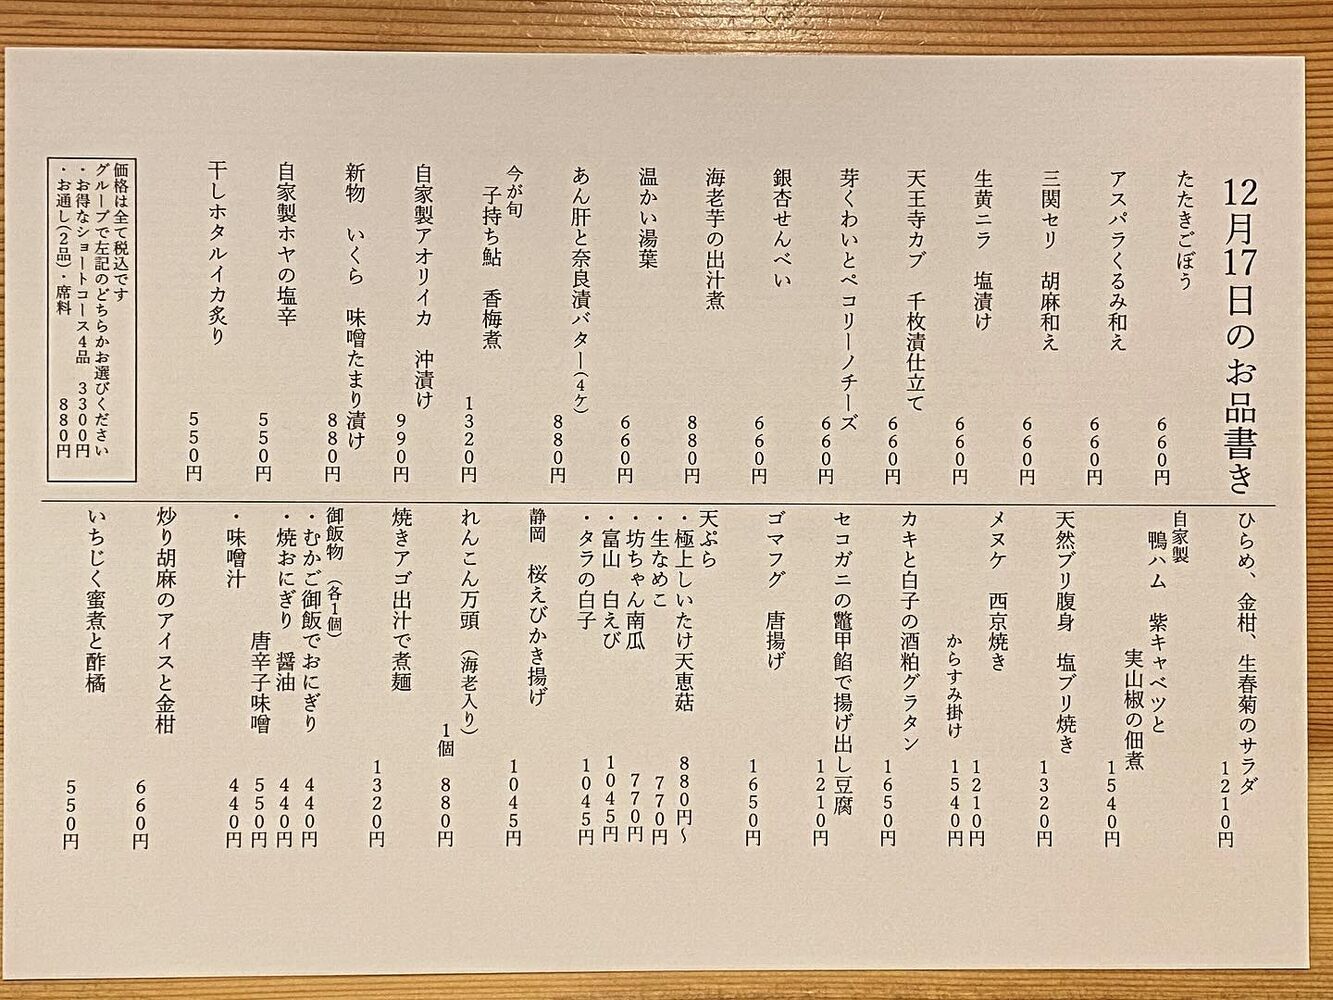 12月17日のお品書き
たたきごぼう 660円
アスパラくるみ和え 660円
三関セリ 胡麻和え 660円
生黄ニラ 塩漬け 660円
天王寺カブ 千枚漬仕立て 660円
芽くわいとペコリーノチーズ 660円
銀杏せんべい 660円
海老芋の出汁煮 880円
温かい湯葉 660円
あん肝と奈良漬バター(4ケ) 880円
今が旬
子持ち鮎 香梅煮 1320円
自家製アオリイカ 沖漬け 990円
新物 いくら 味噌たまり漬け 880円
自家製ホヤの塩辛 550円
干しホタルイカ炙り 550円
価格は全て税込です
グループで左記のどちらかお選びください
・お得なショートコース4品 3300円
・お通し(2品)・席料 880円
ひらめ、金柑、生春菊のサラダ 1210円
自家製
鴨ハム 紫キャベツと
実山椒の佃煮 1540円
天然ブリ腹身 塩ブリ焼き 1320円
メヌケ 西京焼き 1210円
からすみ掛け 1540円
カキと白子の酒粕グラタン 1650円
セコガニの鼈甲餡で揚げ出し豆腐 1210円
ゴマフグ 唐揚げ 1650円
天ぷら
・極上しいたけ天恵菇 880円～
・生なめこ 770円
・坊ちゃん南瓜 770円
・富山 白えび 1045円
・タラの白子 1045円
静岡 桜えびかき揚げ 1045円
れんこん万頭 (海老入り)
1個 880円
焼きアゴ出汁で煮麺 1320円
御飯物 (各1個)
・むかご御飯でおにぎり 440円
・焼おにぎり 醤油 440円
唐辛子味噌 550円
・味噌汁 440円
炒り胡麻のアイスと金柑 660円
いちじく蜜煮と酢橘 550円